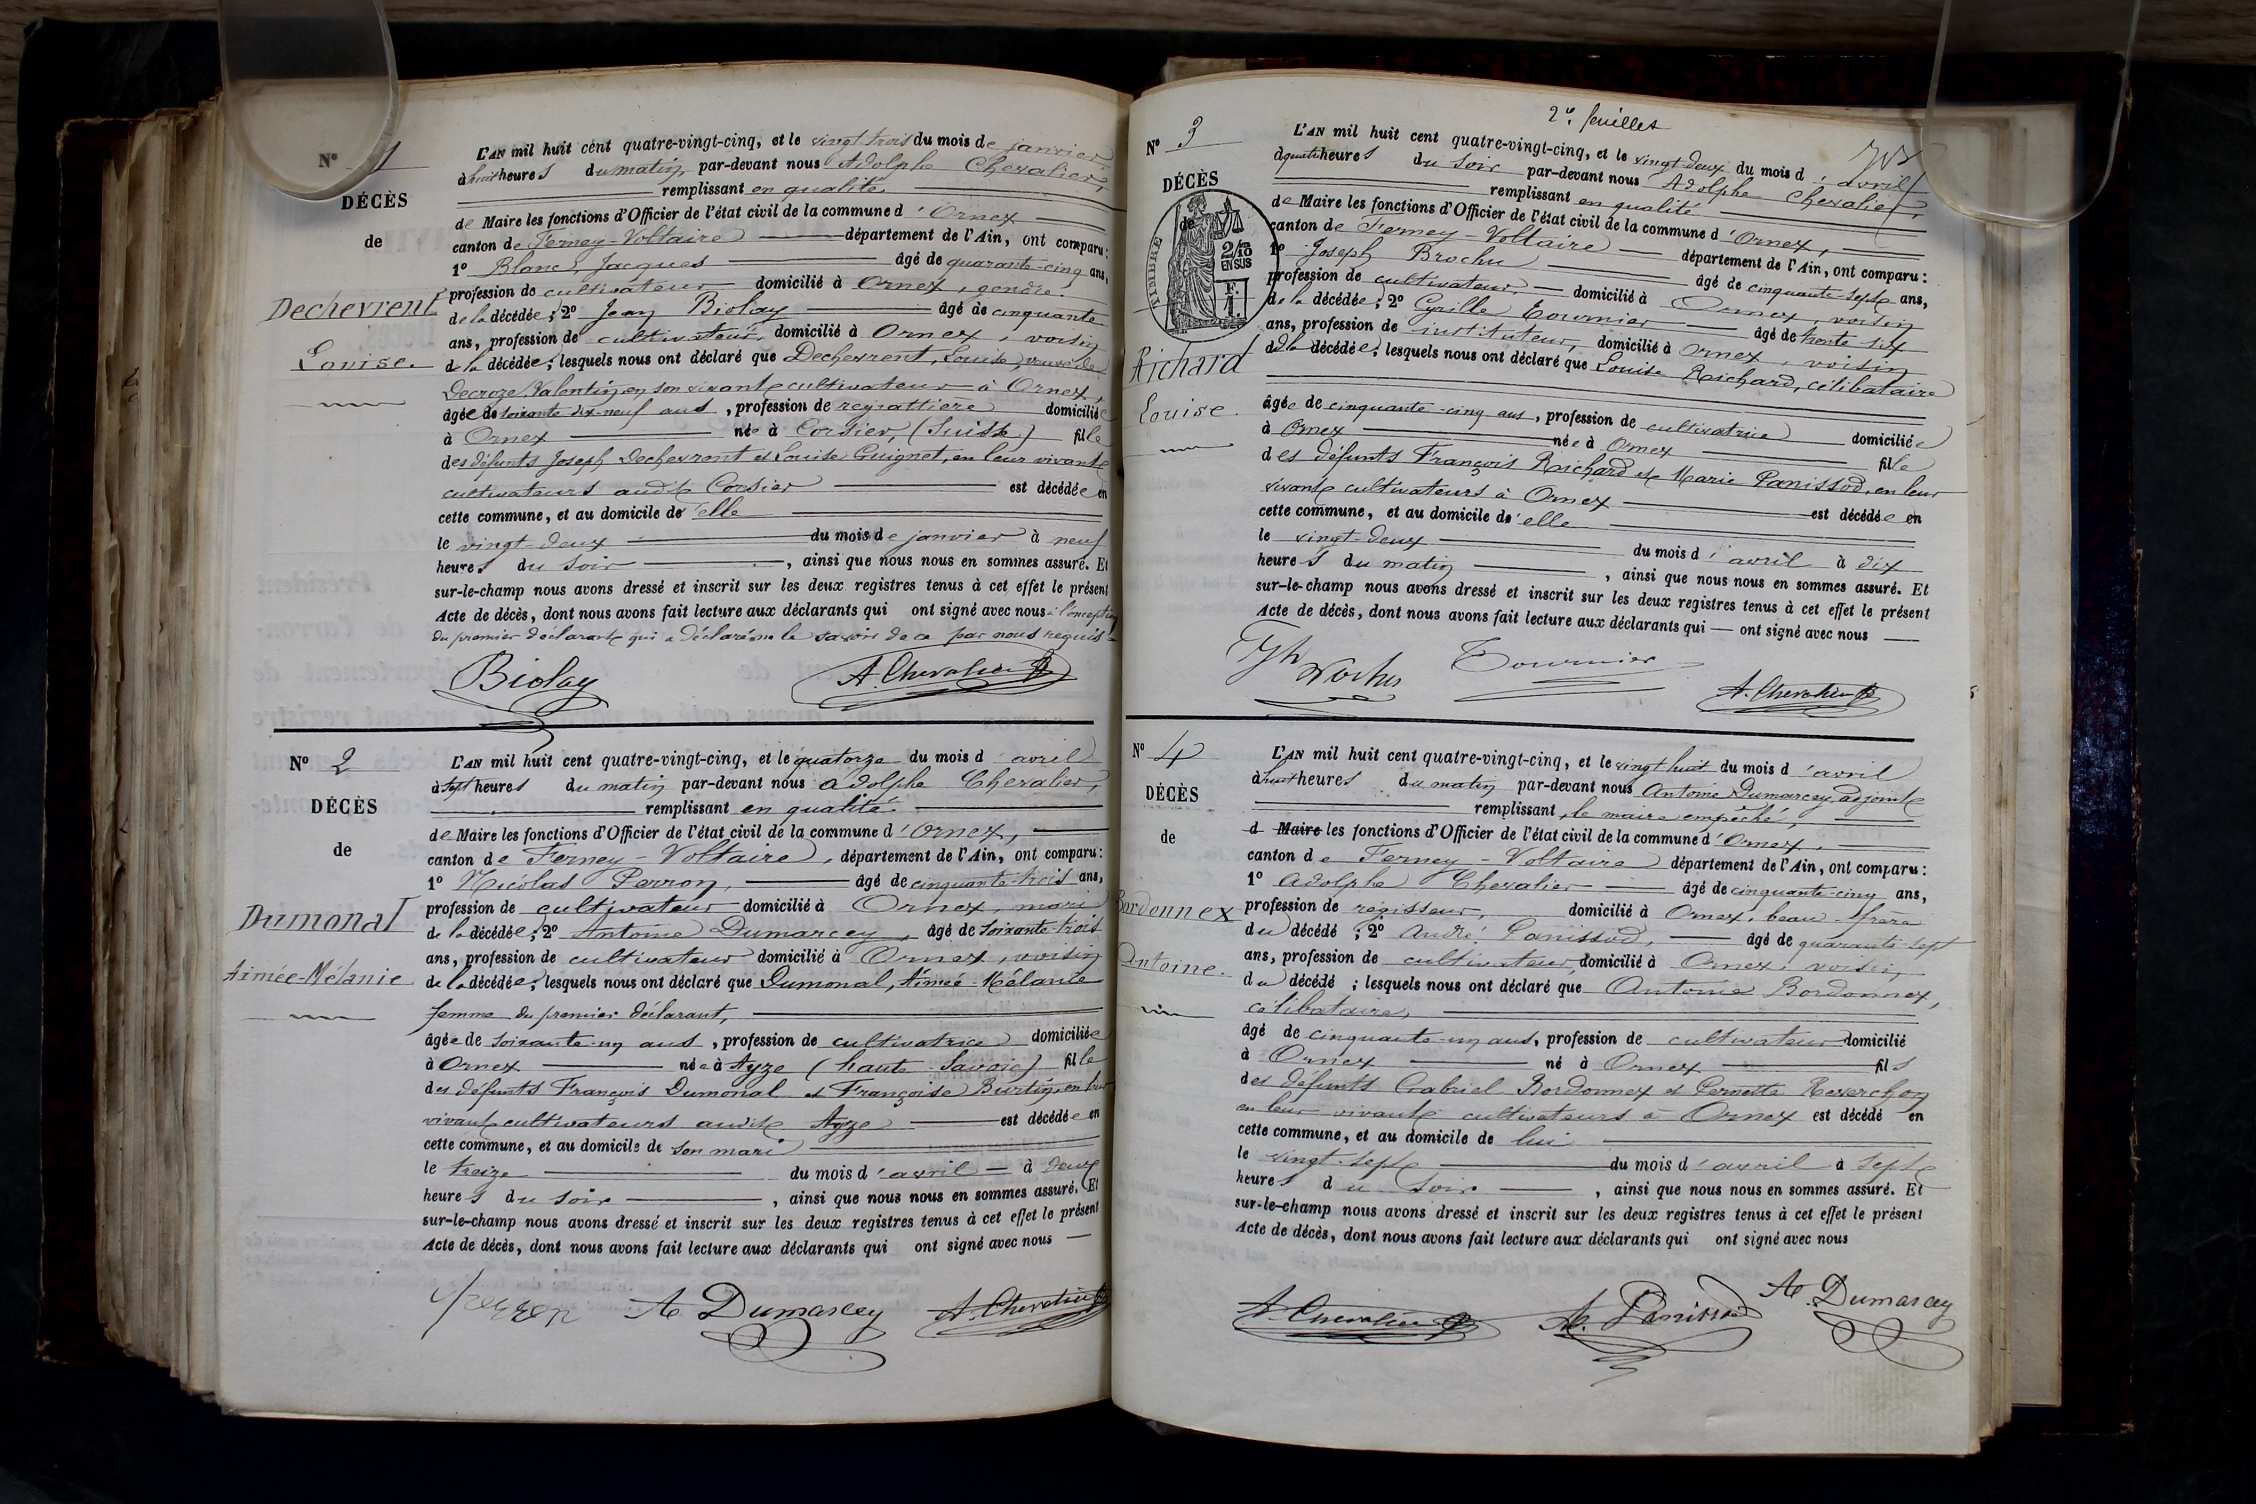 N° 1
DÉCÈS
de
Dechevrent
Louise.
L'AN mil huit cent quatre-vingt-cinq, et le vingt trois du mois de janvier
à huit heures du matin, par-devant nous Adolphe Chevalier,
remplissant en qualité
de Maire les fonctions d'Officier de l'état civil de la commune d'Ornex
canton de Ferney-Voltaire département de l'Ain, ont comparu:
1° Blanc, Jacques âgé de quarante-cinq ans,
profession de cultivateur domicilié à Ornex, gendre
de la décédée; 2° Jean Biolay âgé de cinquante
ans, profession de cultivateur, domicilié à Ornex, voisin
de la décédée; lesquels nous ont déclaré que Dechevrent, Louise, veuve de
Decroze, Valentin, en son vivant cultivateur à Ornex,
âgée de soixante dix-neuf ans, profession de regrattière domiciliée
à Ornex née à Corsier, (Suisse) fille
des défunts Joseph Dechevront et Louise Guignet, en leur vivant
cultivateurs audit Corsier est décédée en
cette commune, et au domicile d'elle
le vingt-deux du mois de janvier à neuf
heures du soir, ainsi que nous nous en sommes assuré. Et
sur-le-champ nous avons dressé et inscrit sur les deux registres tenus à cet effet le présent
Acte de décès, dont nous avons fait lecture aux déclarants qui ont signé avec nous à l'exception
du premier déclarant qui a déclaré ne le savoir de ce par nous requis
Biolay A. Chevalier
N° 2
DÉCÈS
de
Dumonal
Aimée-Mélanie
L'AN mil huit cent quatre-vingt-cinq, et le quatorze du mois d'avril
à sept heures du matin par-devant nous Adolphe Chevalier,
remplissant en qualité
de Maire les fonctions d'Officier de l'état civil de la commune d'Ornex,
canton de Ferney-Voltaire, département de l'Ain, ont comparu:
1° Nicolas Perron, âgé de cinquante-trois ans,
profession de cultivateur domicilié à Ornex, mari
de la décédée; 2° Antoine Dumarcey, âgé de soixante-trois
ans, profession de cultivateur domicilié à Ornex, voisin
de la décédée; lesquels nous ont déclaré que Dumonal, Aimée-Mélanie
femme du premier déclarant,
âgée de soixante-un ans, profession de cultivatrice domiciliée
à Ornex née à Ayze (haute Savoie) fille
des défunts François Dumonal et Françoise Burtin, en leur
vivant cultivateurs audit Ayze est décédée en
cette commune, et au domicile de son mari
le treize du mois d'avril à deux
heures du soir, ainsi que nous nous en sommes assuré. Et
sur-le-champ nous avons dressé et inscrit sur les deux registres tenus à cet effet le présent
Acte de décès, dont nous avons fait lecture aux déclarants qui ont signé avec nous
A Dumarcey A. Chevalier
2e. feuilles
N° 3
DÉCÈS
de
TIMBRE
2/10 EN SUS
Richard
Louise.
L'AN mil huit cent quatre-vingt-cinq, et le vingt-deux du mois d'avril
à quatre heures du soir par-devant nous Adolphe Chevalier,
remplissant en qualité
de Maire les fonctions d'Officier de l'état civil de la commune d'Ornex,
canton de Ferney-Voltaire département de l'Ain, ont comparu:
1° Joseph Brochu âgé de cinquante-sept ans,
profession de cultivateur, domicilié à Ornex, voisin
de la décédée; 2° Cyrille Tournier âgé de trente six
ans, profession de instituteur, domicilié à Ornex voisin
de la décédée; lesquels nous ont déclaré que Louise Richard, célibataire
âgée de cinquante-cinq ans, profession de cultivatrice domiciliée
à Ornex née à Ornex fille
des défunts François Richard et Marie Panissod, en leur
vivant cultivateurs à Ornex est décédée en
cette commune, et au domicile d'elle
le vingt-deux du mois d'avril à dix
heures du matin, ainsi que nous nous en sommes assuré. Et
sur-le-champ nous avons dressé et inscrit sur les deux registres tenus à cet effet le présent
Acte de décès, dont nous avons fait lecture aux déclarants qui ont signé avec nous
Tournier A. Chevalier
N° 4
DÉCÈS
de
Bordonnex
Antoine.
L'AN mil huit cent quatre-vingt-cinq, et le vingt huit du mois d'avril
à huit heures du matin par-devant nous Antoine Dumarcey, adjoint
remplissant, le maire empêché,
d Maire les fonctions d'Officier de l'état civil de la commune d'Ornex,
canton de Ferney-Voltaire département de l'Ain, ont comparu:
1° Adolphe Chevalier âgé de cinquante-cinq ans,
profession de régisseur, domicilié à Ornex, beau-frère
du décédé; 2° André Panissod, âgé de quarante-sept
ans, profession de cultivateur, domicilié à Ornex, voisin
du décédé; lesquels nous ont déclaré que Antoine Bordonnex,
célibataire,
âgé de cinquante-un ans, profession de cultivateur domicilié
à Ornex né à Ornex fils
des défunts Gabriel Bordonnex et Pernette Reverchon
en leur vivant cultivateurs à Ornex est décédé en
cette commune, et au domicile de lui
le vingt-sept du mois d'avril à sept
heures du soir, ainsi que nous nous en sommes assuré. Et
sur-le-champ nous avons dressé et inscrit sur les deux registres tenus à cet effet le présent
Acte de décès, dont nous avons fait lecture aux déclarants qui ont signé avec nous
A. Chevalier A. Panissod A. Dumarcey